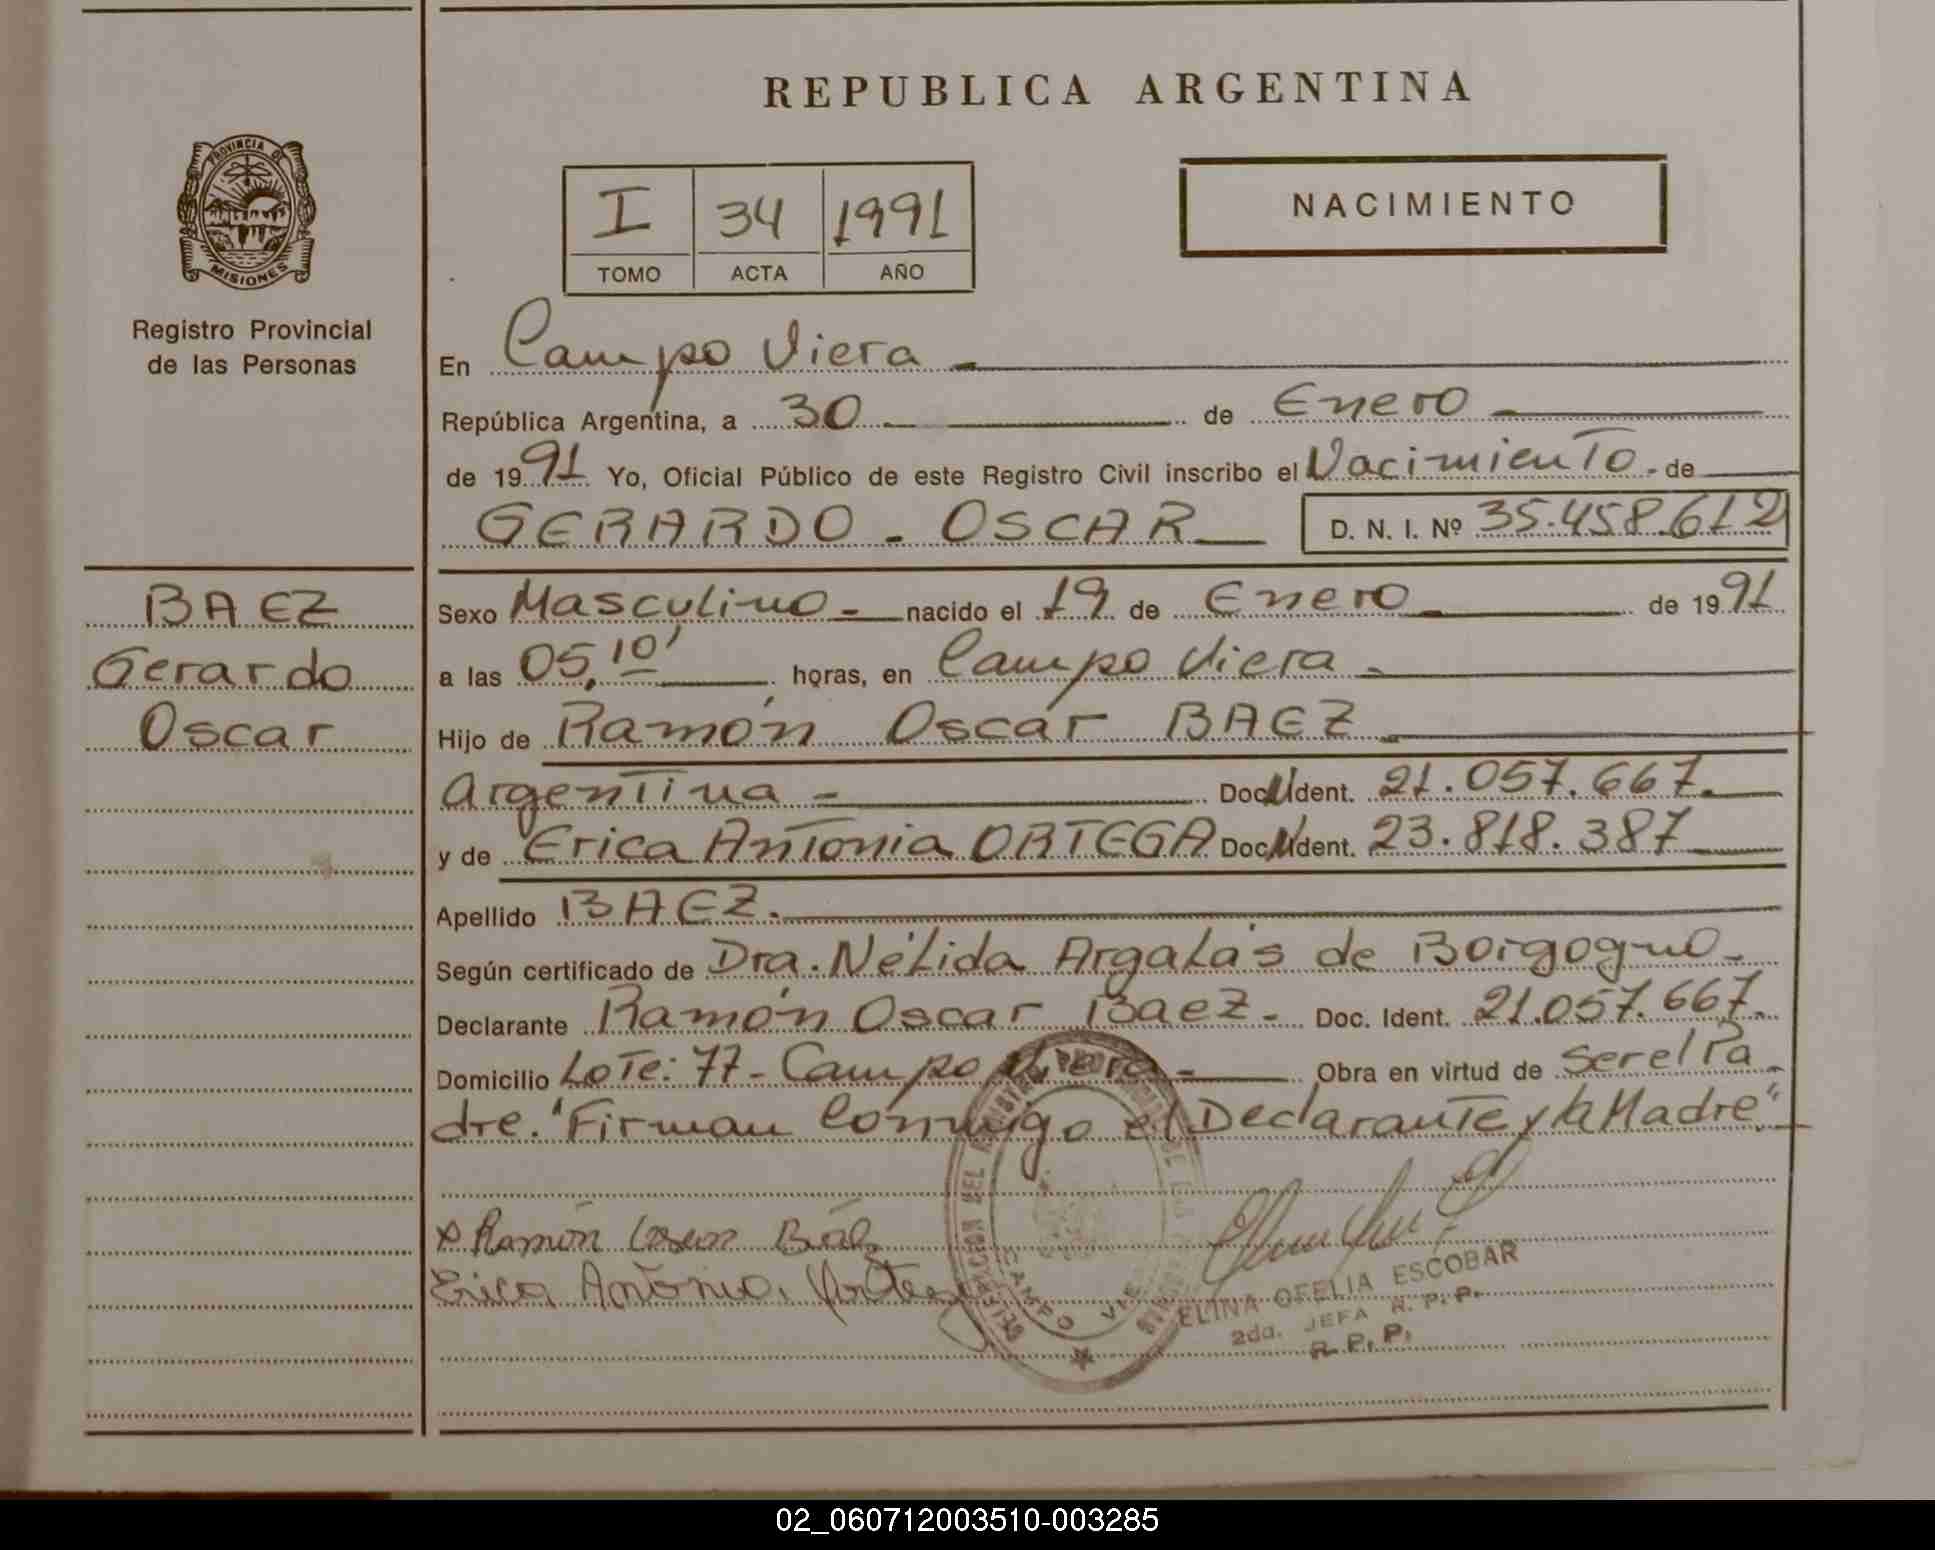 REPUBLICA ARGENTINA
PROVINCIA DE
MISIONES
Registro Provincial
de las Personas
I 34 1991
TOMO ACTA AÑO
NACIMIENTO
En Campo Viera
República Argentina, a 30 de Enero
de 1991 Yo, Oficial Público de este Registro Civil inscribo el Nacimiento de
GERARDO - OSCAR D. N. I. Nº 35.458.612
BAEZ
Gerardo
Oscar
Sexo Masculino nacido el 19 de Enero de 1991
a las 05,10' horas, en Campo Viera
Hijo de Ramón Oscar BAEZ
Argentina Doc. Ident. 21.057.667
y de Erica Antonia ORTEGA Doc. Ident. 23.818.387
Apellido BAEZ.
Según certificado de Dra. Nélida Argalás de Borgogno
Declarante Ramón Oscar Baez Doc. Ident. 21.057.667
Domicilio Lote: 77 - Campo Viera Obra en virtud de ser el Pa
dre. "Firman Conmigo el Declarante y la Madre"
Ramón Oscar Báez
Erica Antonia Ortega
CAMPO
ELINA OFELIA ESCOBAR
2da. JEFA R. P. P.
R. P. P.
02_060712003510-003285